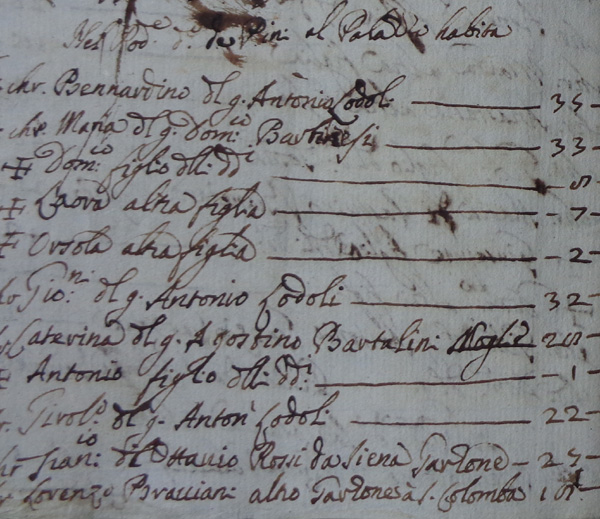 Nel Pod.e d.o de Pin: al Pala habita
chr. Bennardino dl g. Antonio Lodoli 35
chr. Maria dl g. Dom:io Bartinesi 33
Dom:io figlio dlli ddi 8
Laora altra figlia 7
Orsola altra figlia 2
Gio:ni dl g. Antonio Lodoli 32
Caterina dl g. Agostino Bartalini Moglie 28
Antonio figlio dlli ddi 1
Girol:o dl g. Anton: Lodoli 22
Fran:io dl Ottavio Rossi da Siena Garzone 25
Lorenzo Bracciani altro Garzone à S. Colomba 18